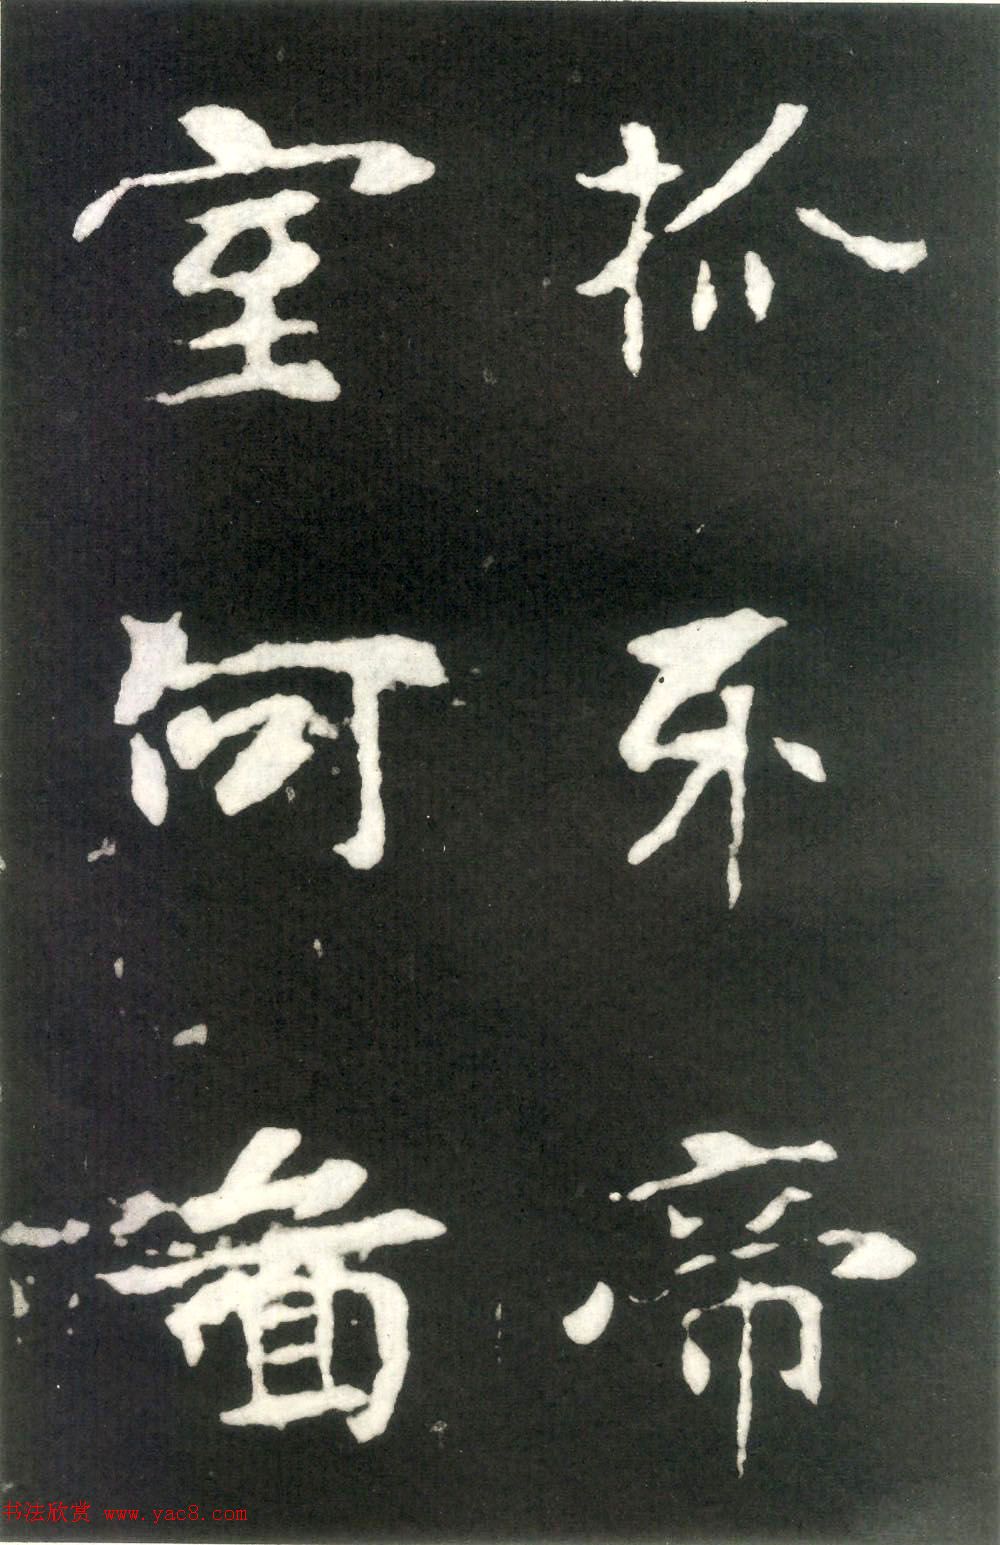 扵不帝
室何
书法欣赏 www.yac8.com